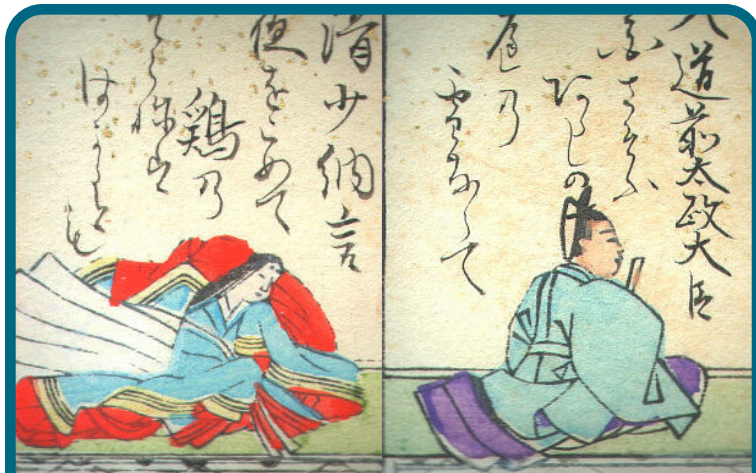 入道前太政大臣
花さそふ
あらしの
庭乃
雪ならて
清少納言
夜をこめて
鶏乃
そら音は
はかるとも